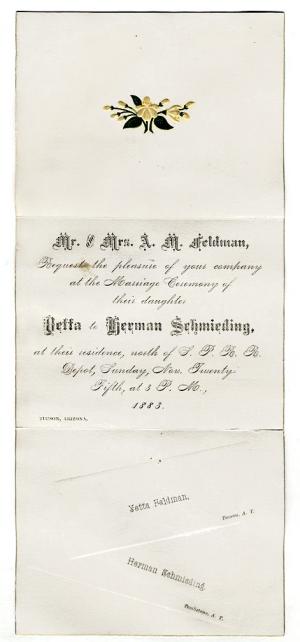 Mr. & Mrs. A. M. Feldman,
Requests the pleasure of your company
at the Marriage Ceremony of
their daughter
Yetta to Herman Schmieding,
at their residence, north of S. P. R. R.
Depot, Sunday, Nov. Twenty
Fifth, at 3 P. M.,
1883.
TUCSON, ARIZONA,
Yetta Feldman,
Tucson, A. T.
Herman Schmieding
Tombstone, A. T.